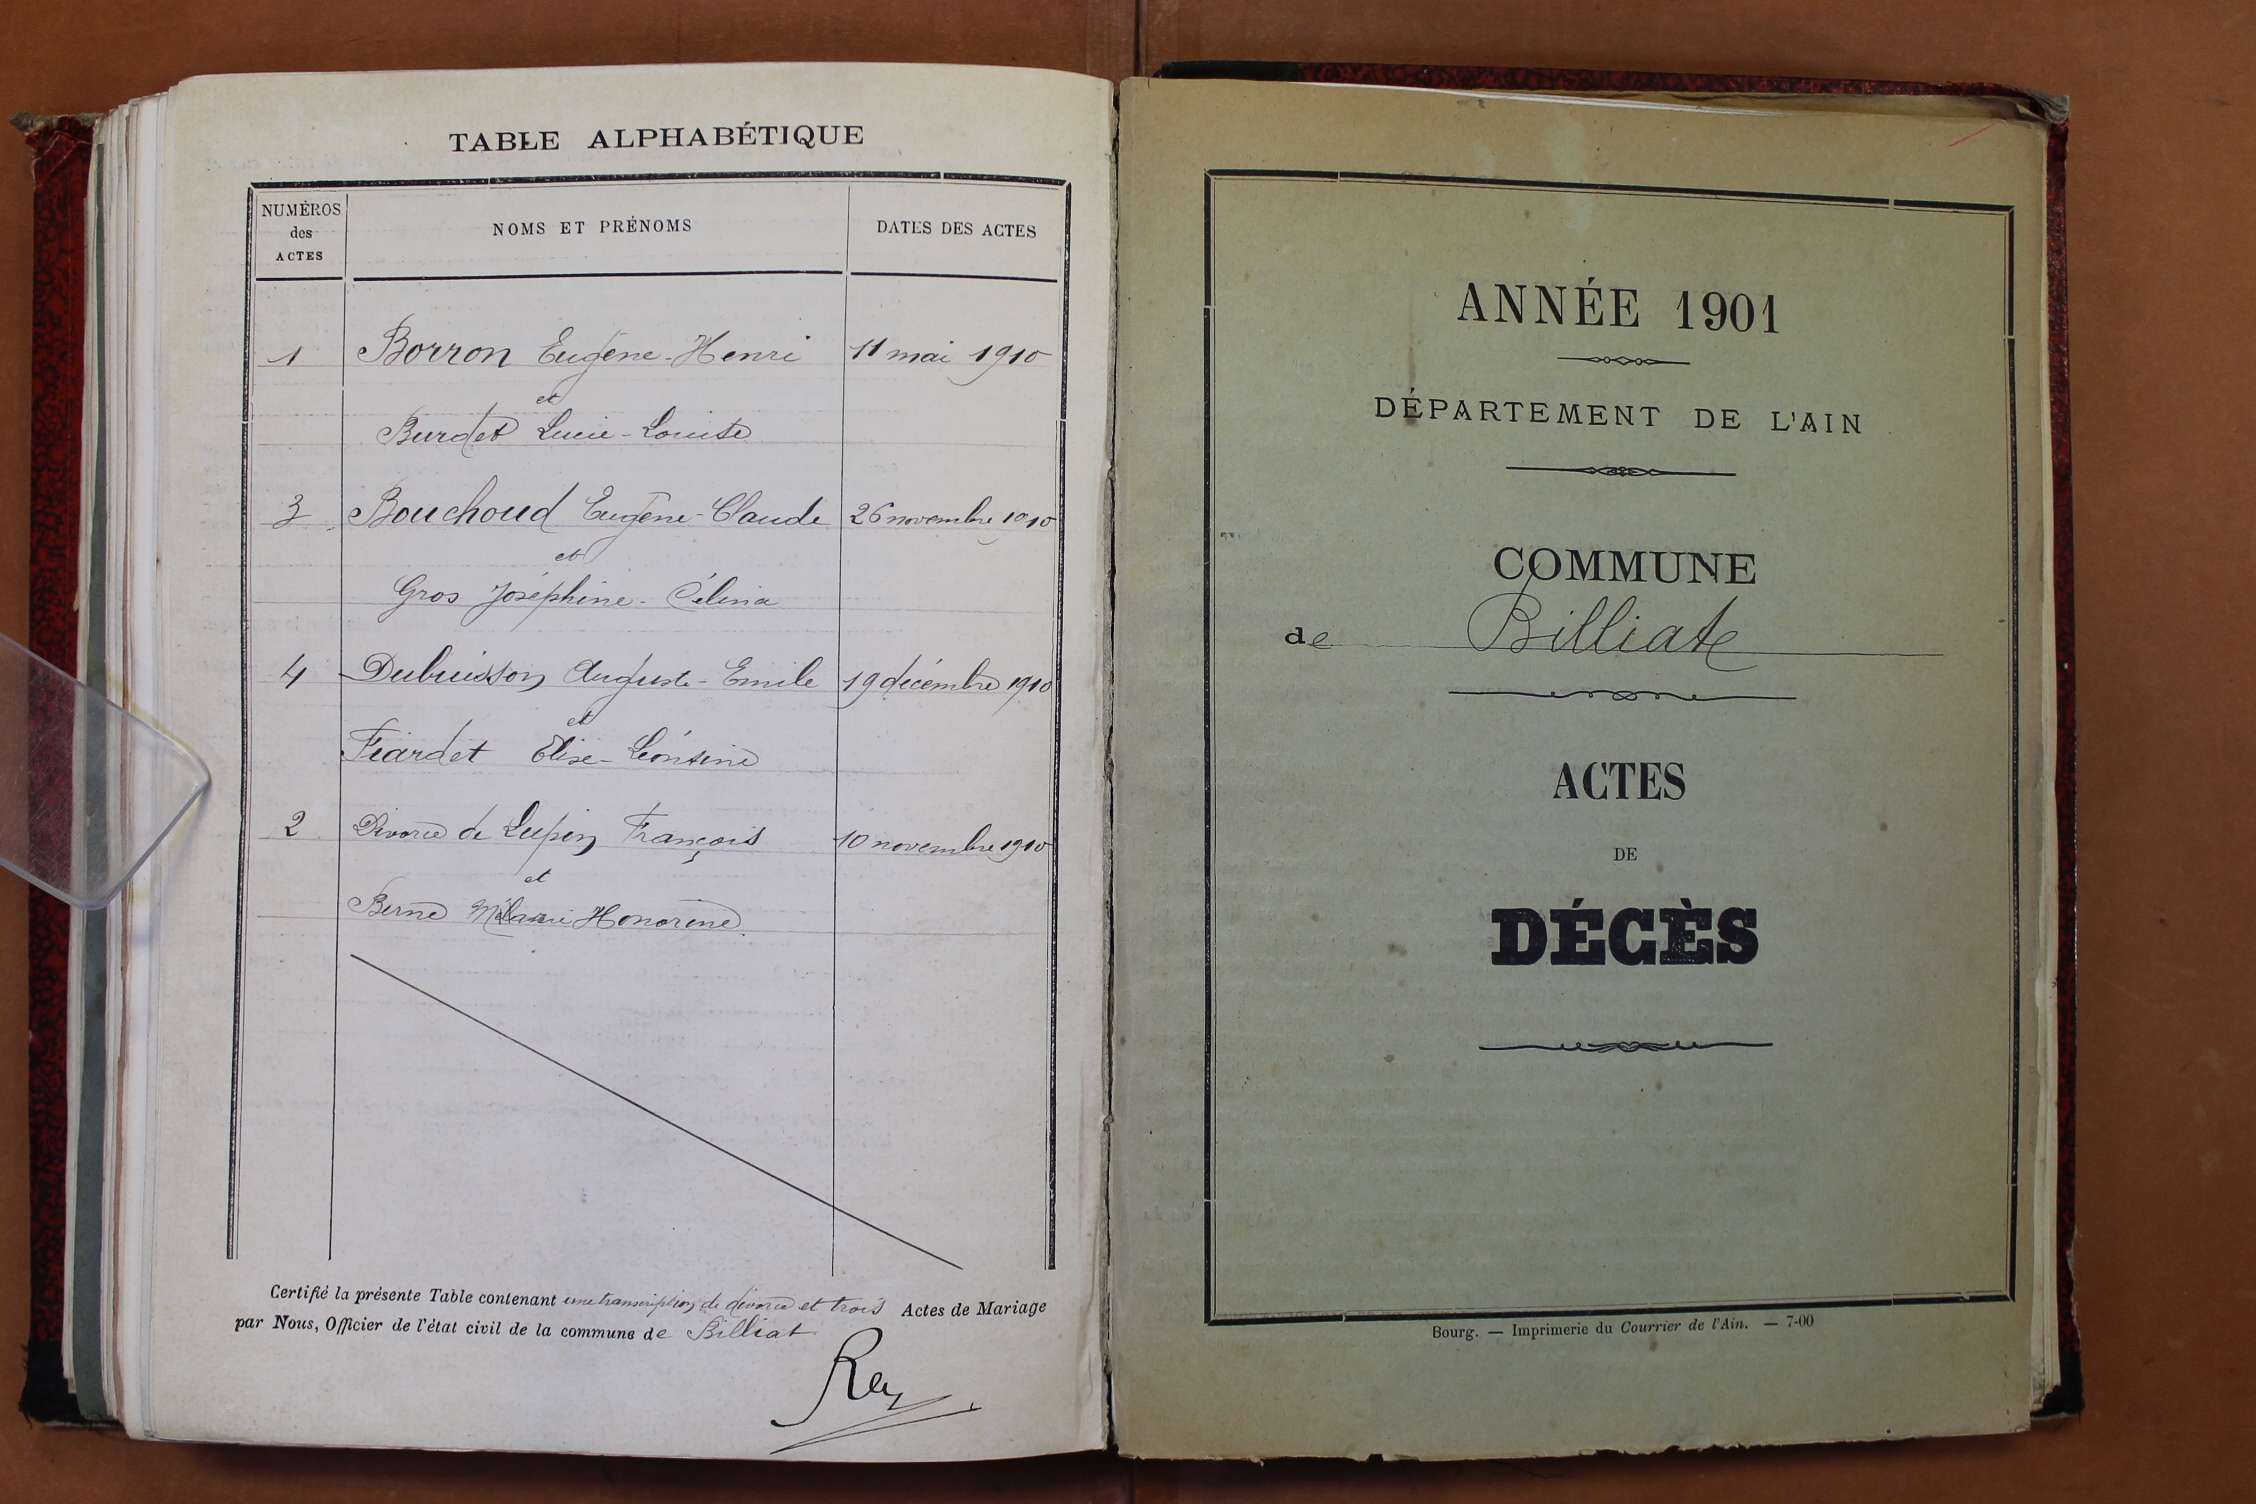 TABLE ALPHABÉTIQUE
NUMÉROS
des
ACTES
NOMS ET PRÉNOMS
DATES DES ACTES
1 Borron Eugène-Henri 11 mai 1910
et
Burdet Lucie-Louise
3 Bouchoud Eugène-Claude 26 novembre 1910
et
Gros Joséphine-Célina
4 Dubuisson Auguste-Emile 19 décembre 1910
et
Féardet Elise-Léontine
2 Divorce de Lupin François 10 novembre 1910
et
Berne Honorine
Certifié la présente Table contenant une transcription de divorce et trois Actes de Mariage
par Nous, Officier de l'état civil de la commune de Billiat
Rey
ANNÉE 1901
DÉPARTEMENT DE L'AIN
COMMUNE
de Billiat
ACTES
DE
DÉCÈS
Bourg. — Imprimerie du Courrier de l'Ain. — 7-00